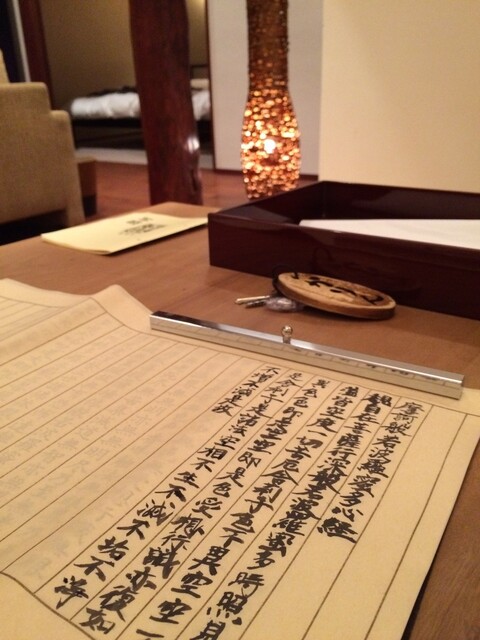 摩訶般若波羅蜜多心経
観自在菩薩行深般若波羅蜜多時照見
五蘊皆空度一切苦厄舎利子色不異空空
異色色即是空空即是色受想行識亦復如
是舎利子是諸法空相不生不滅不垢不浄
不増不減是故